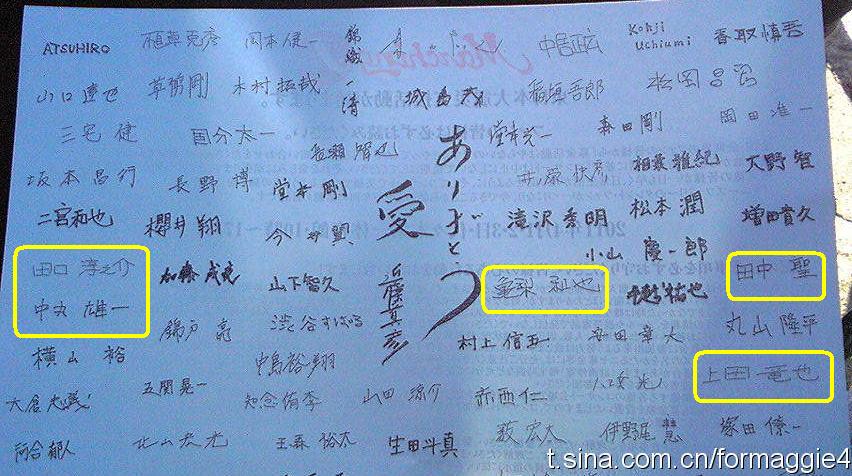 ATSUHIRO 植草克彦 岡本健一 錦織一清 中居正広 Kohji Uchiumi 香取慎吾
山口達也 草彅剛 木村拓哉 城島茂 稲垣吾郎 松岡昌宏
三宅 健 国分太一 長瀬智也 堂本光一 森田剛 岡田准一
坂本昌行 長野 博 堂本 剛 ありがとう 井ノ原快彦 相葉雅紀 大野智
二宮和也 櫻井翔 今井翼 愛 滝沢秀明 松本潤 増田貴久
田口 淳之介 加藤成亮 山下智久 近藤真彦 亀梨和也 小山慶一郎 手越祐也 田中 聖
中丸 雄一 錦戸 亮 渋谷すばる 村上信五 安田章大 丸山隆平
横山 裕 五関晃一 中島裕翔 上田竜也
大倉忠義 知念侑李 山田涼介 赤西仁 八乙女光
河合郁人 北山宏光 玉森裕太 生田斗真 薮宏太 伊野尾慧 塚田僚一
Marching J
t.sina.com.cn/formaggie4